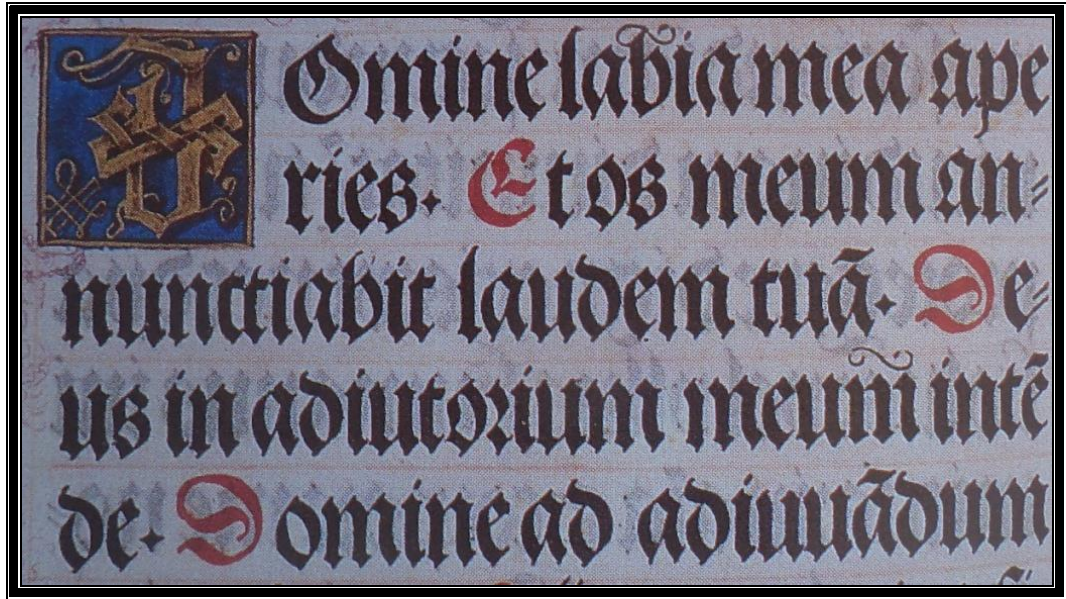 DOmine labia mea ape
ries. Et os meum an=
nunctiabit laudem tuā. De=
us in adiutorium meum intē
de. Domine ad adiuuādum